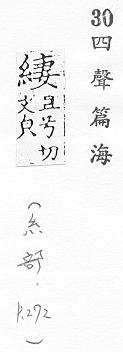 30 四聲篇海
緀 且兮切
文皃
(糸部·P.272)